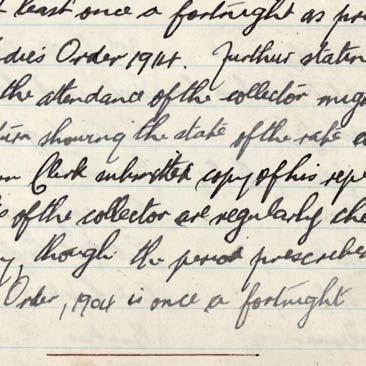 t least once a fortnight as pre
dies Order 1914. Further statin
the attendance of the collector mig
turn showing the state of the rate
Clerk submitted copy of his rep
of the collector are regularly che
, though the period prescribe
Order, 1904 is once a fortnight